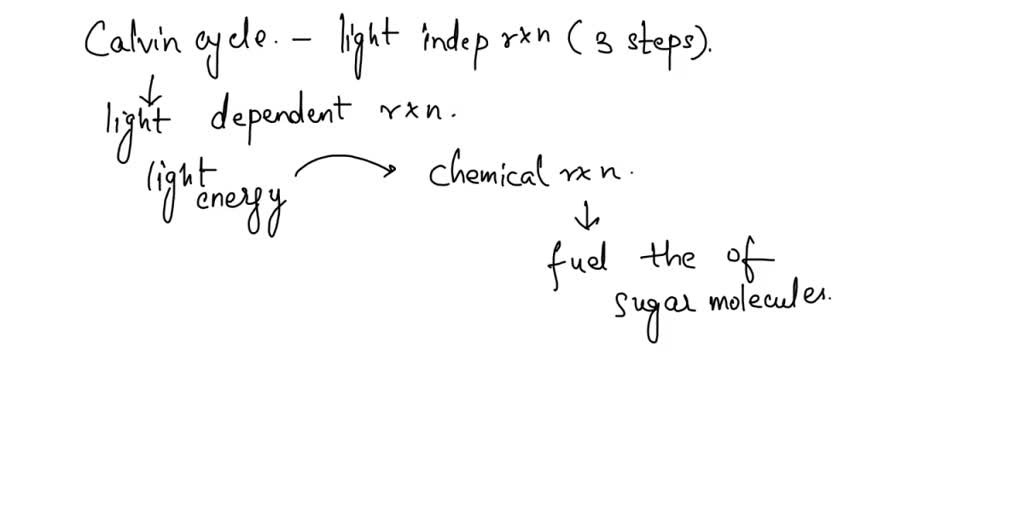 Calvin cycle. - light indep rxn (3 steps).
↓
light dependent rxn.
light energy → chemical rxn.
↓
fuel the of
sugar molecules.